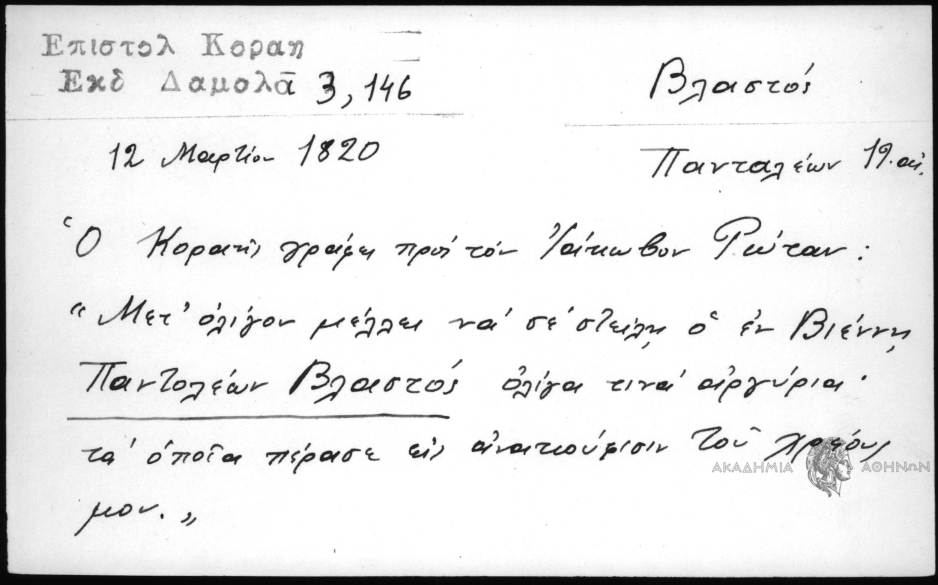 Επιστολ Κοραη
Εκδ Δαμολᾶ 3, 146
Βλαστός
12 Μαρτίου 1820
Πανταλέων 19. αἰ.
Ὁ Κοραῆς γράφει πρὸς τὸν Ἰάκωβον Ρώταν:
"Μετ' ὀλίγον μέλλει νὰ σὲ στείλῃ ὁ ἐν Βιέννῃ
Παντολέων Βλαστός ὀλίγα τινὰ ἀργύρια·
τὰ ὁποῖα πέρασε εἰς ἀνακούφισιν τοῦ χρέους
μου."
ΑΚΑΔΗΜΙΑ ΑΘΗΝΩΝ